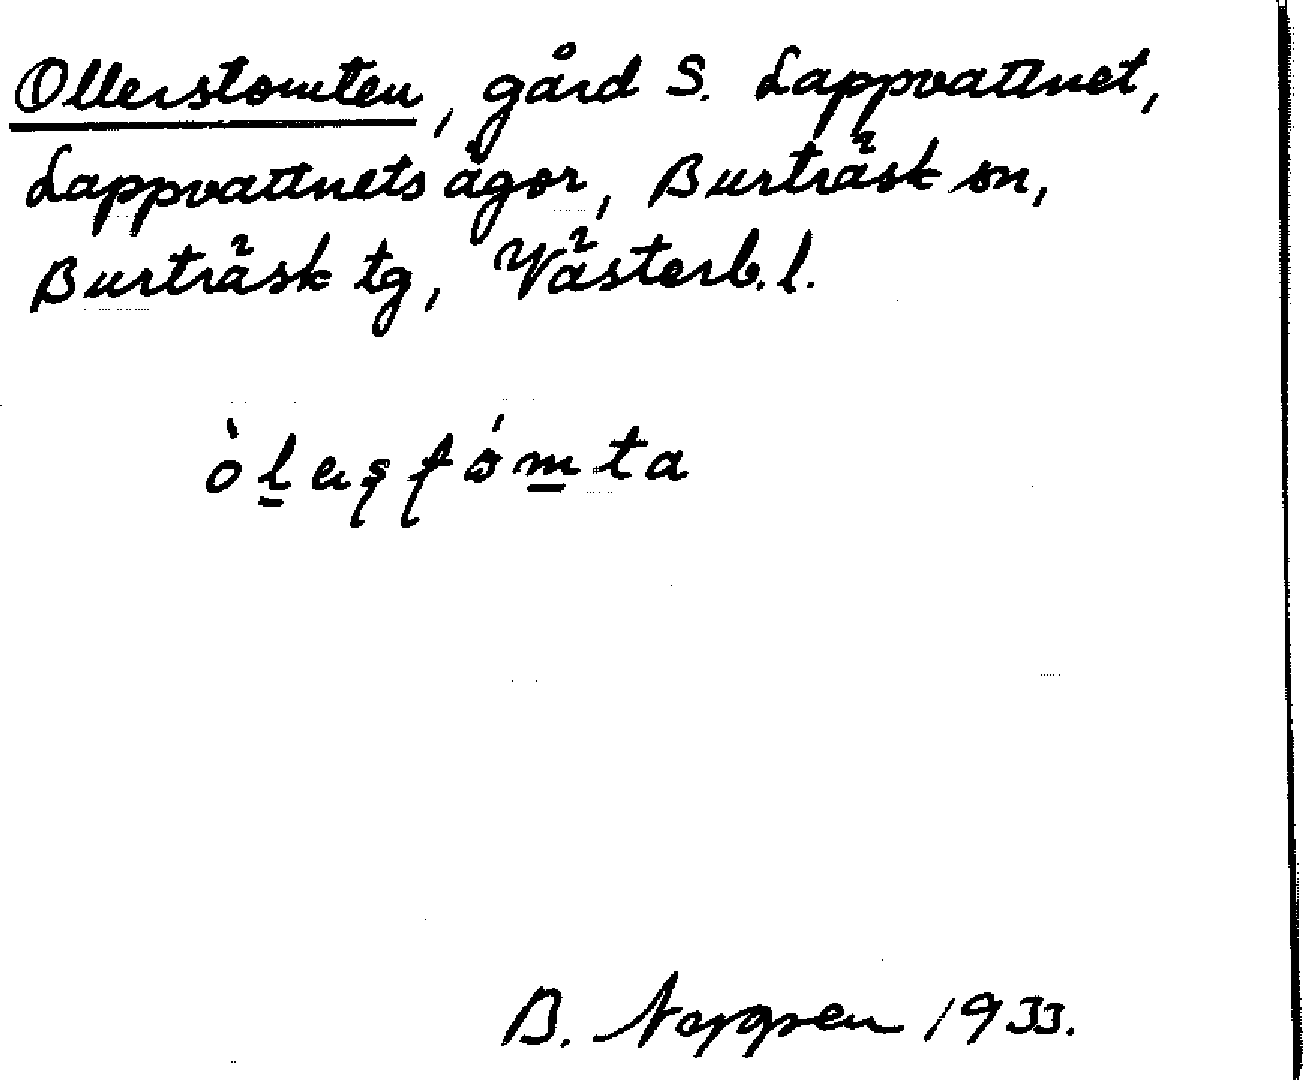 Ollerstomten, gård S. Lappvattnet,
Lappvattnets ägor, Burträsk sn,
Burträsk tg, Västerb. l.
B. Nygren 1933.